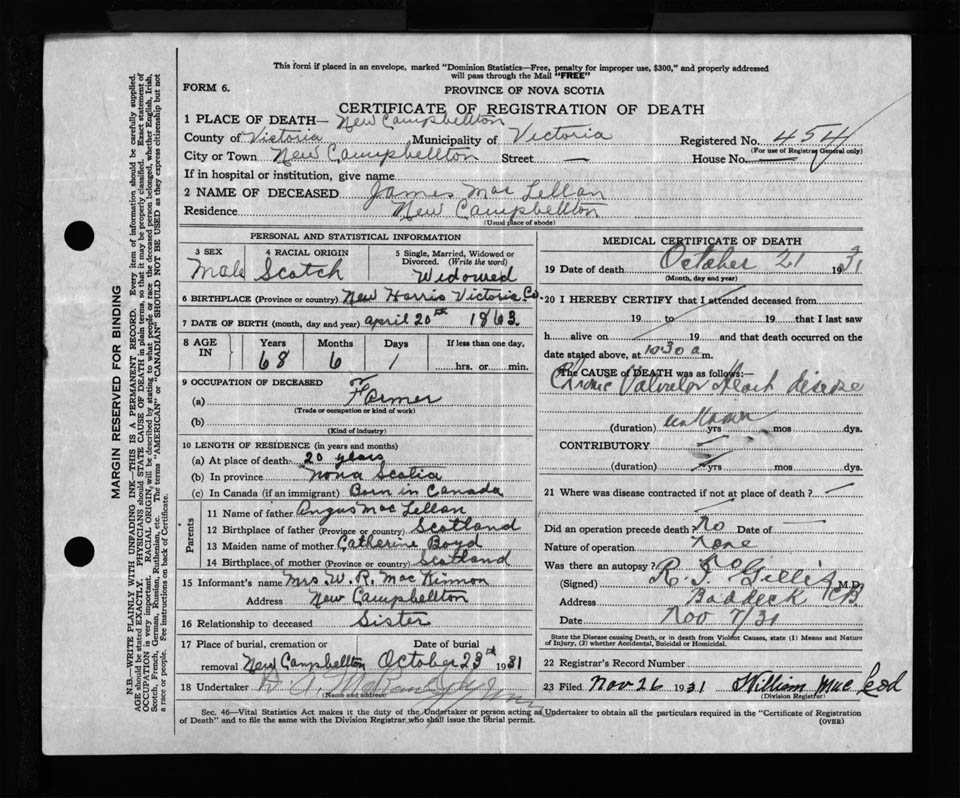 This form if placed in an envelope, marked "Dominion Statistics—Free, penalty for improper use, $300," and properly addressed
will pass through the Mail "FREE"
FORM 6.
PROVINCE OF NOVA SCOTIA
CERTIFICATE OF REGISTRATION OF DEATH
1 PLACE OF DEATH— New Campbellton
County of Victoria Municipality of Victoria Registered No. 454
(For use of Registrar General only)
City or Town New Campbellton Street — House No. —
If in hospital or institution, give name
2 NAME OF DECEASED James Mac Lellan
Residence New Campbellton
(Usual place of abode)
PERSONAL AND STATISTICAL INFORMATION
3 SEX 4 RACIAL ORIGIN 5 Single, Married, Widowed or
Divorced. (Write the word)
Male Scotch Widowed
6 BIRTHPLACE (Province or country) New Harris Victoria Co.
7 DATE OF BIRTH (month, day and year) april 20th 1863.
8 AGE IN Years Months Days If less than one day,
68 6 1 hrs. or min.
9 OCCUPATION OF DECEASED
(a) Farmer
(Trade or occupation or kind of work)
(b)
(Kind of industry)
10 LENGTH OF RESIDENCE (in years and months)
(a) At place of death 20 years
(b) In province nova Scotia
(c) In Canada (if an immigrant) Born in Canada
Parents
11 Name of father Angus Mac Lellan
12 Birthplace of father (Province or country) Scotland
13 Maiden name of mother Catherine Boyd
14 Birthplace of mother (Province or country) Scotland
15 Informant's name Mrs. W. R. Mac Kinnon
Address New Campbellton
16 Relationship to deceased Sister
17 Place of burial, cremation or Date of burial
removal New Campbellton October 23th 1931
18 Undertaker
(Name and address)
MEDICAL CERTIFICATE OF DEATH
19 Date of death October 21 1931
(Month, day and year)
20 I HEREBY CERTIFY that I attended deceased from
19 to 19 that I last saw
h alive on 19 and that death occurred on the
date stated above, at 1030 a m.
The CAUSE OF DEATH was as follows:—
Chronic Valvular Heart disease
unknown
(duration) yrs mos dys.
CONTRIBUTORY
(duration) yrs mos dys.
21 Where was disease contracted if not at place of death? —
Did an operation precede death? No Date of —
Nature of operation none
Was there an autopsy? no
(Signed) R. J. Gillis M.D.
Address Baddeck C.B.
Date Nov 7/31
State the Disease causing Death, or in death from Violent Causes, state (1) Means and Nature
of Injury, (2) whether Accidental, Suicidal or Homicidal.
22 Registrar's Record Number
23 Filed Nov 26 1931 William Mac Leod
(Division Registrar)
Sec. 46—Vital Statistics Act makes it the duty of the Undertaker or person acting as Undertaker to obtain all the particulars required in the "Certificate of Registration
of Death" and to file the same with the Division Registrar who shall issue the burial permit.
(OVER)
MARGIN RESERVED FOR BINDING
N.B.—WRITE PLAINLY WITH UNFADING INK—THIS IS A PERMANENT RECORD. Every item of information should be carefully supplied.
AGE should be stated EXACTLY. PHYSICIANS should STATE CAUSE OF DEATH in plain terms, so that it may be properly classified. Exact statement of
OCCUPATION is very important. RACIAL ORIGIN, will be described by stating to what people or race the deceased person belonged, whether English, Irish,
Scotch, French, German, Russian, Ruthenian, etc. The terms "AMERICAN" or "CANADIAN" SHOULD NOT BE USED as they express citizenship but not
a race or people. Fee instructions on back of Certificate.